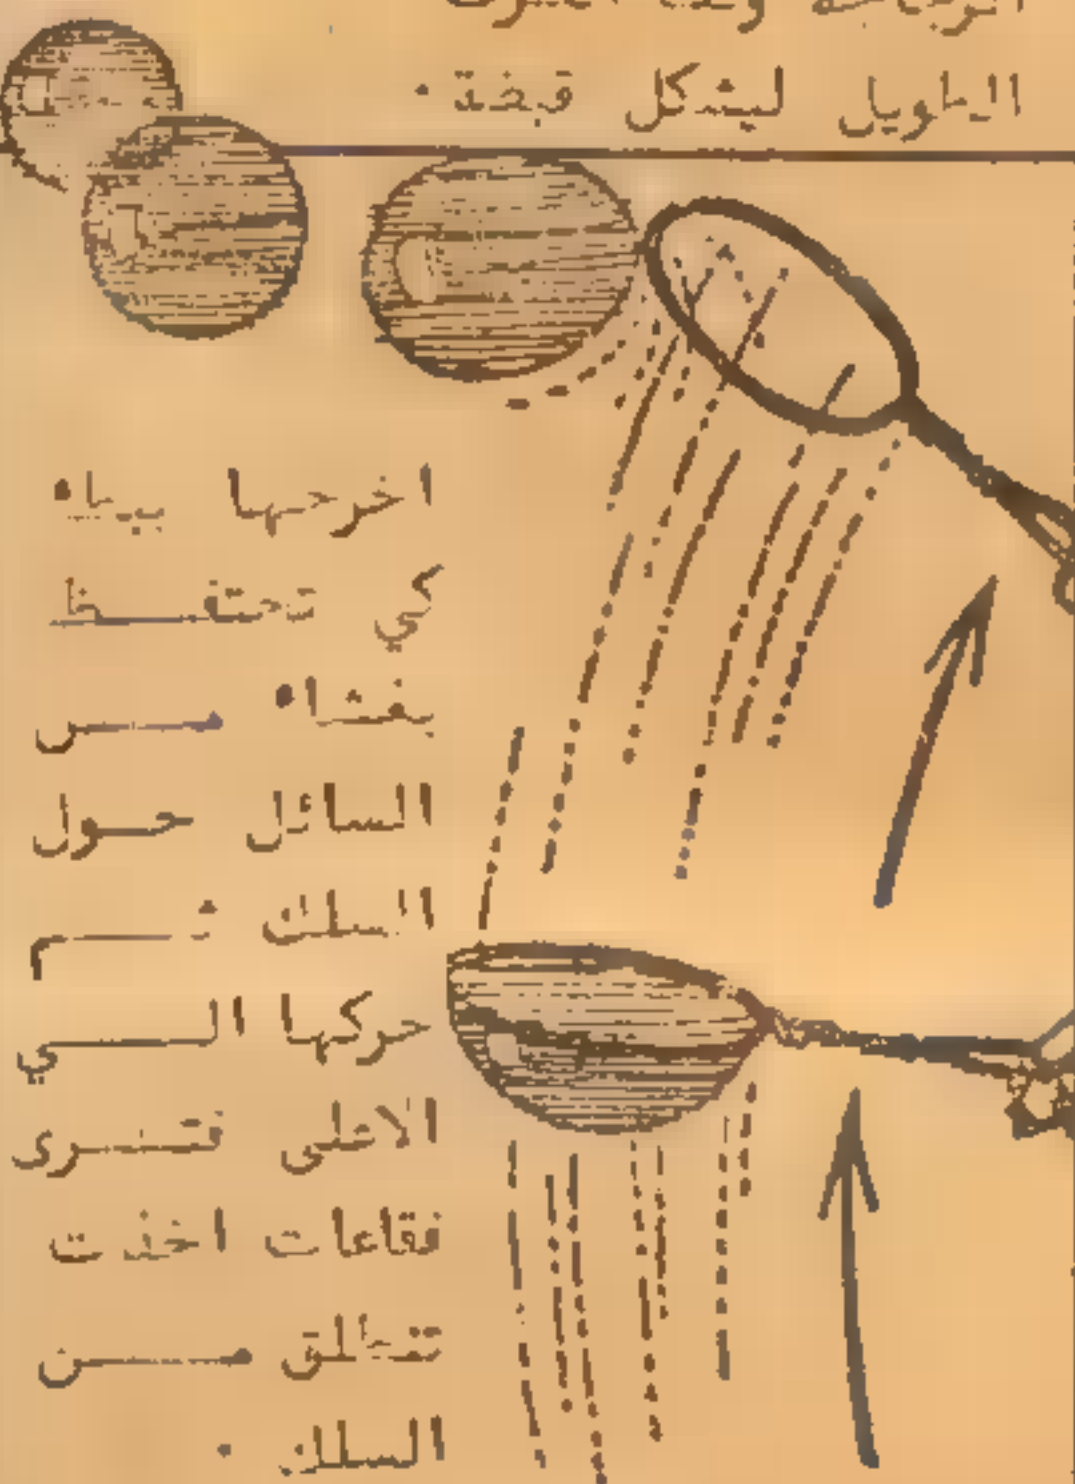 الطويل ليشكل قبضة .
اخرجها بيطء
كي تحتفظ
بغشاء من
السائل حول
السلك ثم
حركها الى
الاعلى فترى
فقاعات اخذت
تنطلق من
السلك .